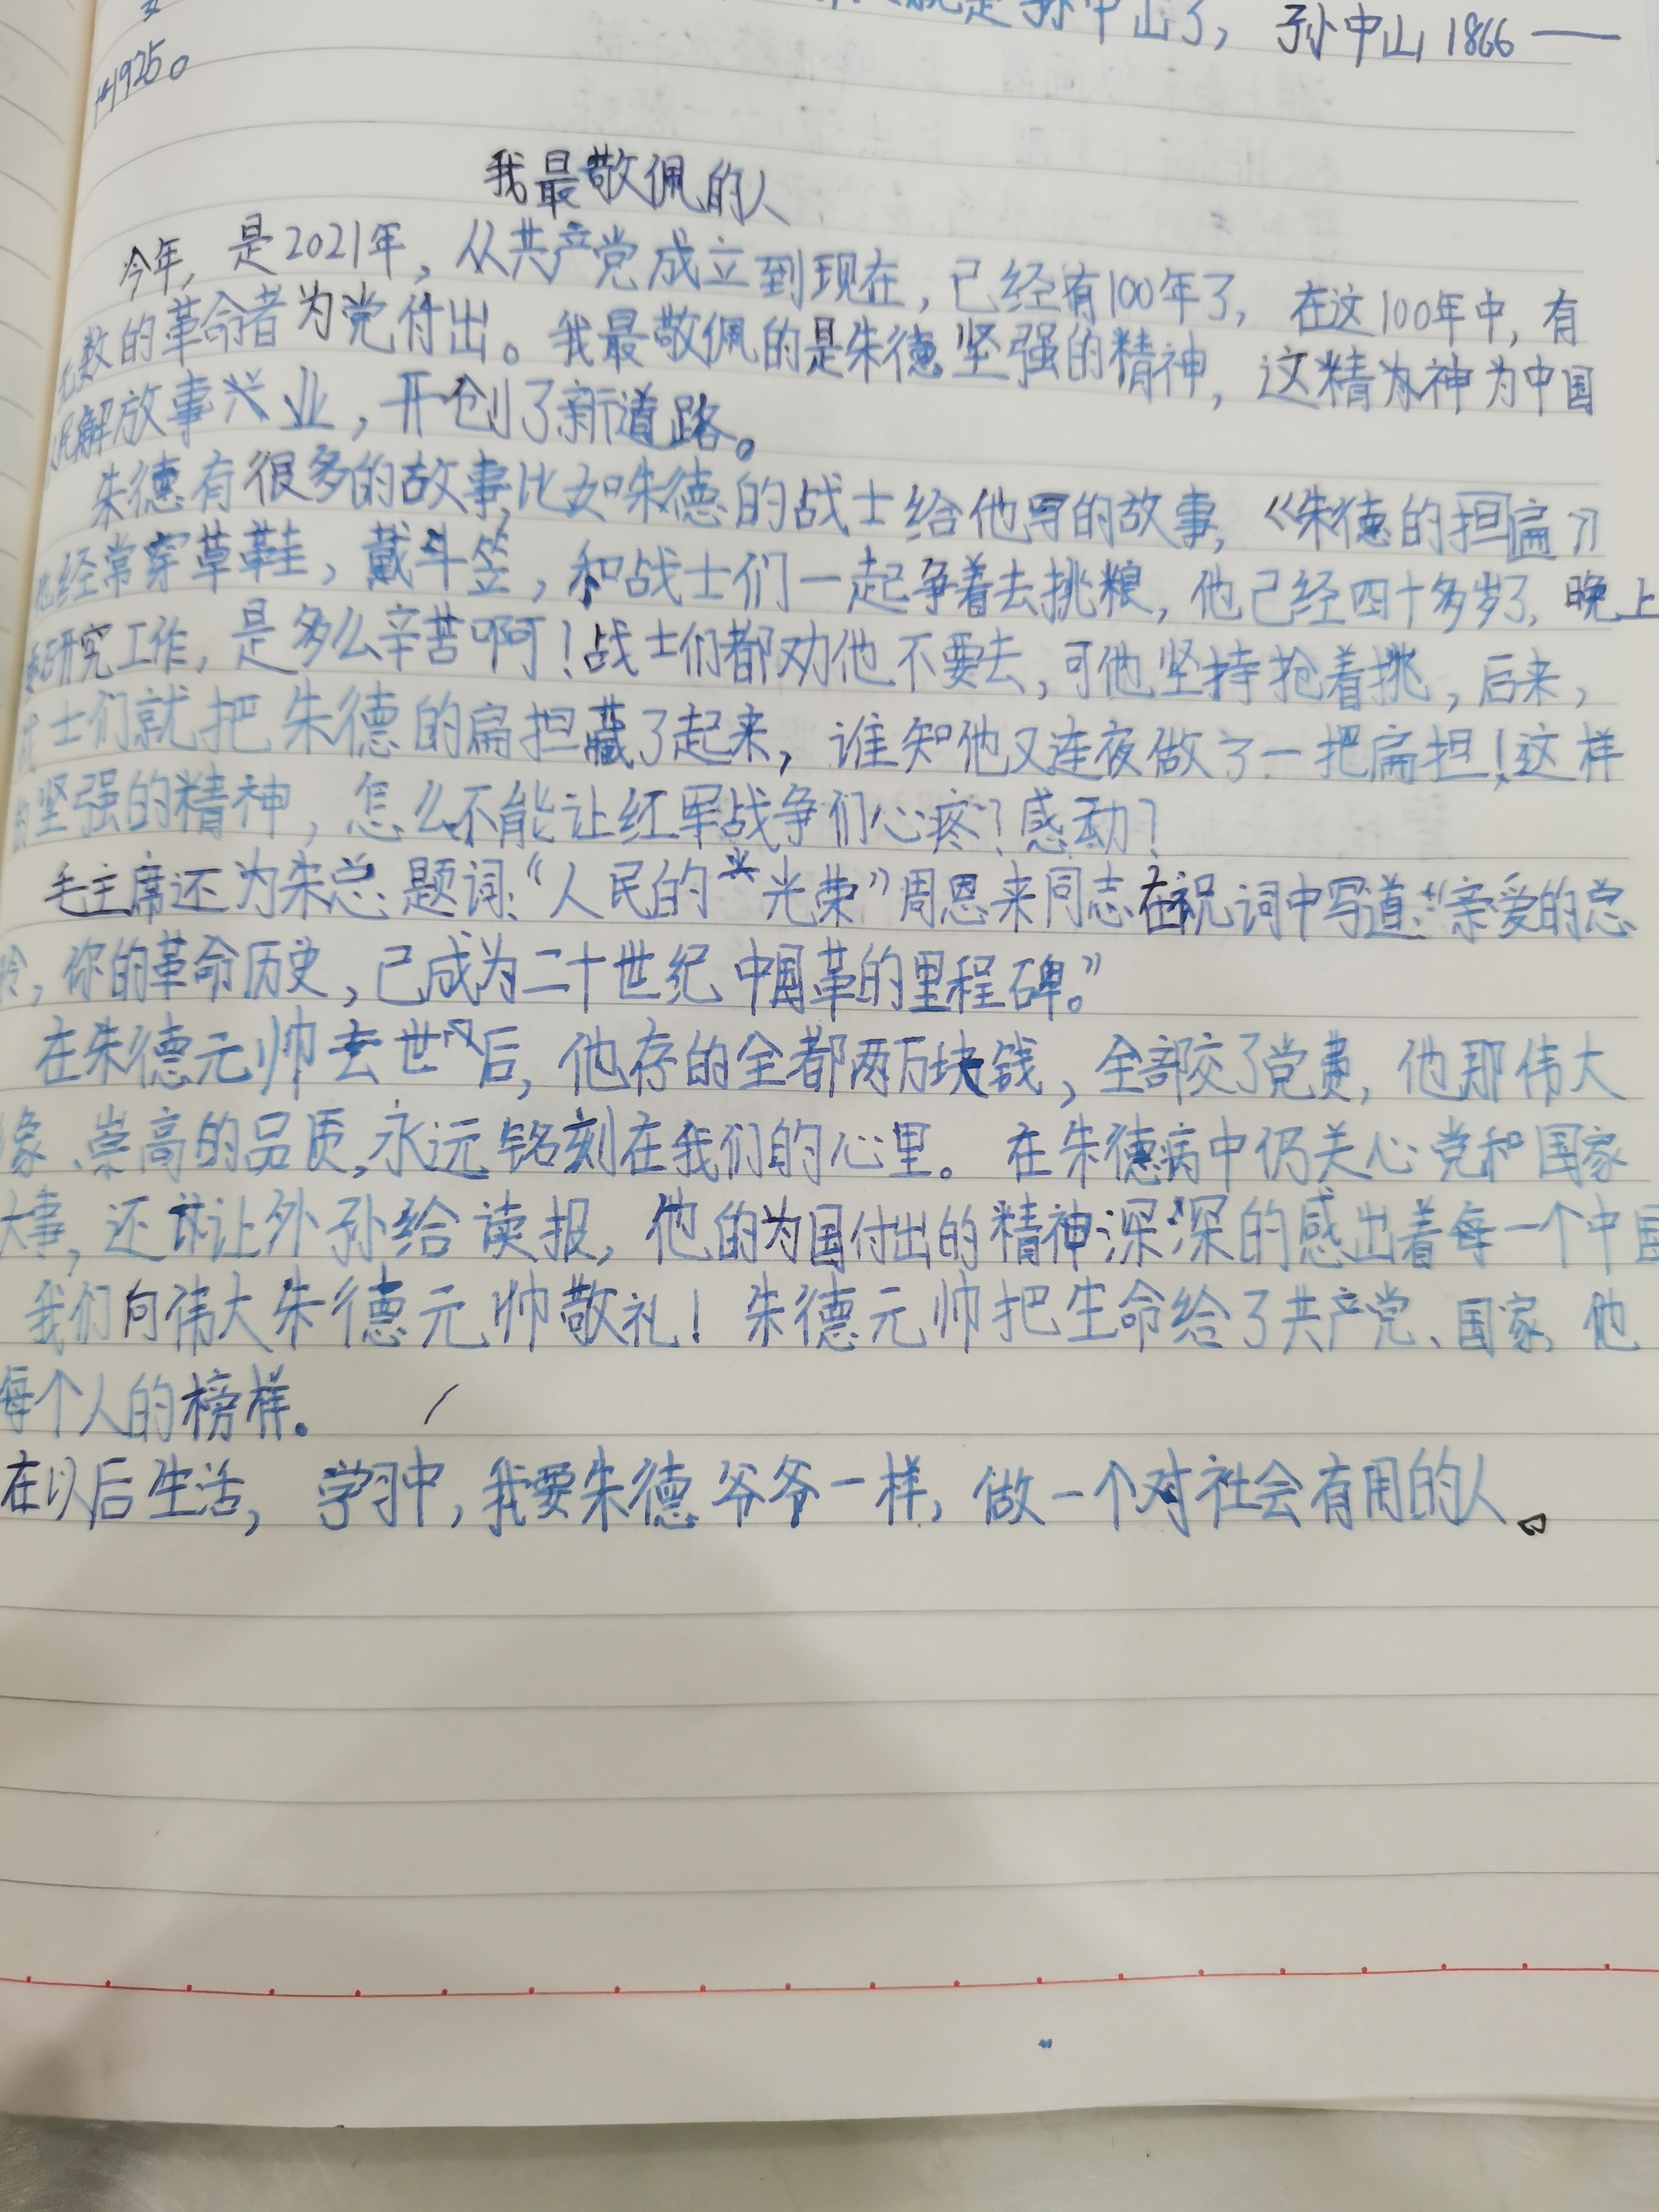 就是孙中山了，孙中山1866——
1925。
我最敬佩的人
今年，是2021年，从共产党成立到现在，已经有100年了，在这100年中，有
无数的革命者为党付出。我最敬佩的是朱德坚强的精神，这精神为中国
民解放事业，开创了新道路。
朱德有很多的故事，比如朱德的战士给他写的故事，《朱德的担扁》
他经常穿草鞋，戴斗笠，和战士们一起争着去挑粮，他已经四十多岁了，晚上
研究工作，是多么辛苦啊！战士们都劝他不要去，可他坚持抢着挑，后来，
战士们就把朱德的扁担藏了起来，谁知他又连夜做了一把扁担！这样
的坚强的精神，怎么不能让红军战争们心疼？感动？
毛主席还为朱总题词：“人民的光荣”周恩来同志在祝词中写道：“亲爱的总
，你的革命历史，已成为二十世纪中国革的里程碑。”
在朱德元帅去世后，他存的全都两万块钱，全部交了党费，他那伟大
、崇高的品质，永远铭刻在我们的心里。在朱德病中仍关心党和国家
大事，还让外孙给读报，他的为国付出的精神深深的感出着每一个中国
我们向伟大朱德元帅敬礼！朱德元帅把生命给了共产党、国家，他
每个人的榜样。
在以后生活，学习中，我要朱德爷爷一样，做一个对社会有用的人。